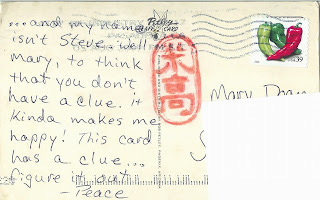 ...and my name
isn't Steve. well
mary, to think
that you don't
have a clue. it
kinda makes me
happy! This card
has a clue...
figure it out
-Peace
Mary
39